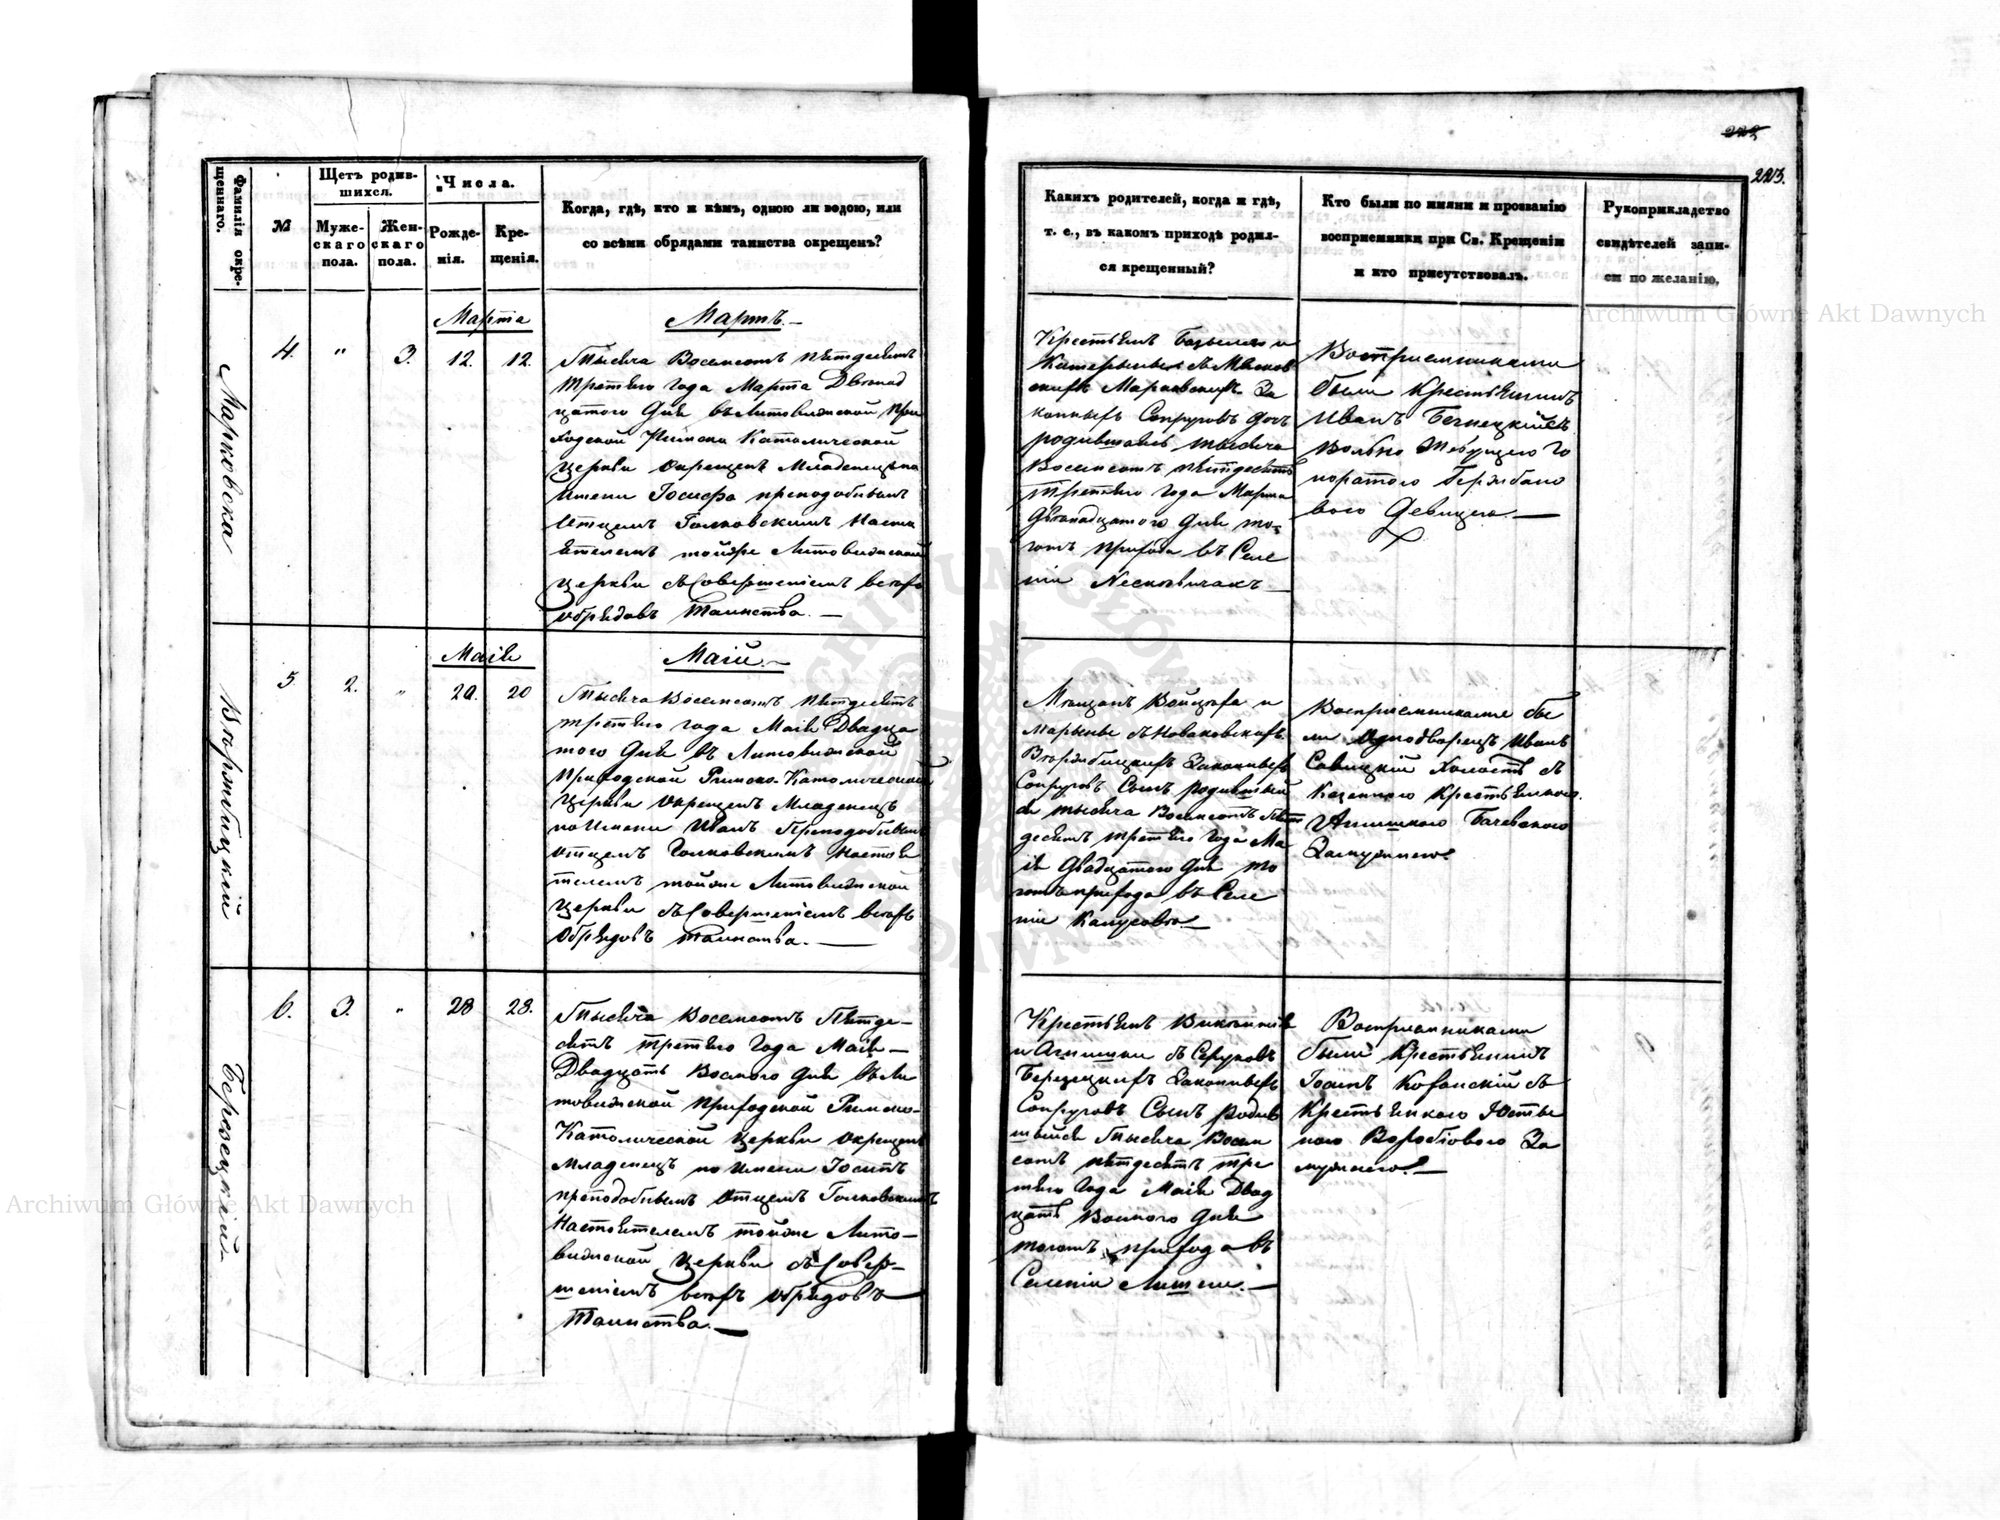 223.
Фамилія окре-
щеннаго.
№
Щетъ родив-
шихся.
Муже-
скаго
пола.
Жен-
скаго
пола.
Числа.
Рожде-
нія.
Кре-
щенія.
Когда, гдѣ, кто и кѣмъ, одною ли водою, или
со всѣми обрядами таинства окрещенъ?
Марковска
4.
"
3.
Марта
12.
12.
Мартъ.—
Тысяча Восемсотъ пятдесятъ
третяго года Марта Двѣнад
цатого Дня въ Литовижской При
ходской Римско Католической
церкви окрещенъ Младенецъ
имени Іосифа преподобнымъ
Отцемъ Голковскимъ Насто
ятелемъ тойже Литовижской
церкви съ Совершеніемъ всѣхъ
обрядовъ Таинства.—
5
2.
"
Маія
20.
20
Маій.—
Тысяча Восемсотъ пятдесятъ
третяго года Маія Двадца
того Дня въ Литовижской
Приходской Римско-Католической
церкви окрещенъ Младенецъ
по Имени Иванъ Преподобнымъ
Отцемъ Голковскимъ Настоя
телемъ тойже Литовижской
Церкви съ Совершеніемъ всѣхъ
Обрядовъ Таинства.—
Березецкій
6.
3.
"
28
28.
Тысяча Восемсотъ Пятде-
сятъ третяго года Маія—
Двадцать Восмого Дня въ Ли
товижской Приходской Римско-
Католической Церкви окрещенъ
Младенецъ по Имени Іосипъ
преподобнымъ Отцемъ Голковскимъ
Настоятелемъ тойже Лито-
вижской Церкви съ Совер-
шеніемъ всѣхъ Обрядовъ
Таинства.—
Какихъ родителей, когда и гдѣ,
т. е., въ какомъ приходѣ родил-
ся крещенный?
Кто были по имяни и прозванію
воспріемники при Св. Крещеніи
и кто присутствовалъ.
Рукоприкладство
свидѣтелей запи-
си по желанію.
Крестьянъ и
Катерыны съ
Марковскихъ За
конныхъ Супруговъ дочь
родившаясь тысяча
Восемсотъ пятдесятъ
Третяго года Марта
Двѣнадцатого Дня то-
гожъ прихода въ Селе
ніи
Воспріемниками
были Крестьянинъ
Иванъ съ
Вольно
Девицею.—
Мѣщанъ Войцѣха и
Марыны съ Новаковскихъ
Законныхъ
Супруговъ Сынъ родившый
ся тысяча Восемсотъ Пят
десятъ третяго Года Ма
ія Двадцатого Дня то
гожъ прихода въ Селе
ніи
Воспріемниками бы
ли Однодворецъ Иванъ
Савицкій Холостъ съ
Крестьянкою
Замужнею.
Крестьянъ
и съ
Березецкихъ Законныхъ
Супруговъ Сынъ родив
шыйся Тысяча Восем
сотъ пятдесятъ тре
тяго Года Маія Двад
цать Восмого Дня
тогожъ прихода въ
Селеніи
Воспріемниками
были Крестьянинъ
съ
Крестьянкою
За
мужнею.—
Archiwum Główne Akt Dawnych
Archiwum Główne Akt Dawnych